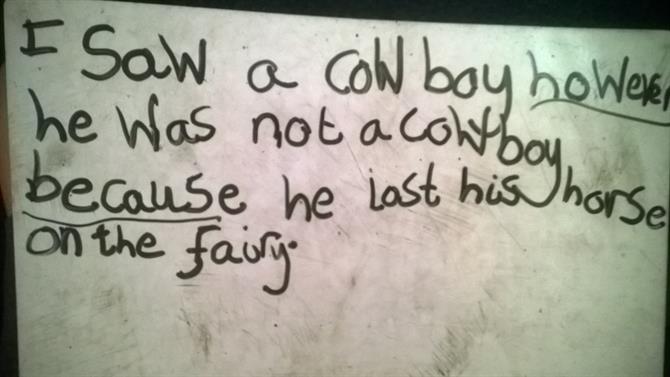 I Saw a cowboy however
he was not a cowboy
because he lost his horse
on the fairy.